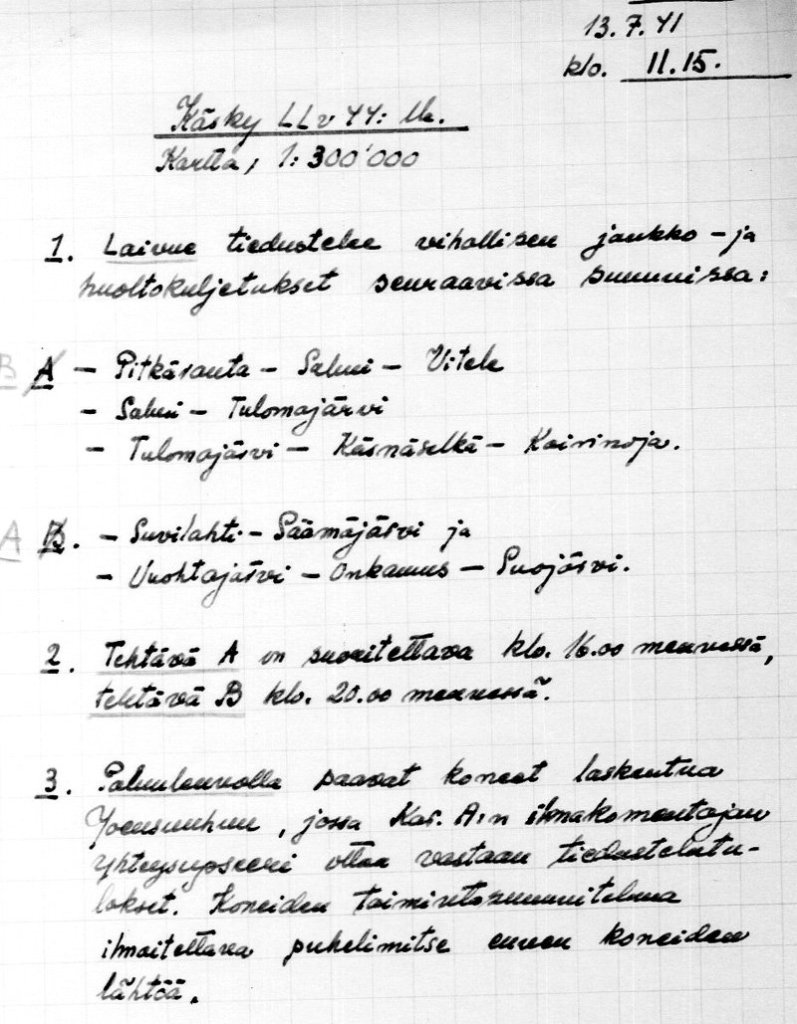 13.7.41
klo. 11.15.
Käsky LLv 44: lle.
Kartta, 1:300'000
1. Laivue tiedustelee vihollisen joukko- ja
huoltokuljetukset seuraavissa suunnissa:
B A – Pitkäranta – Salmi – Vitele
– Salmi – Tulomajärvi
– Tulomajärvi – Käsnäselkä – Koirinoja.
A B. – Suvilahti – Säämäjärvi ja
– Vuohtajärvi – Onkamus – Suojärvi.
2. Tehtävä A on suoritettava klo. 16.00 mennessä,
tehtävä B klo. 20.00 mennessä.
3. Paluulennolla saavat koneet laskeutua
Joensuuhun, jossa Kar. A:n ilmakomentajan
yhteysupseeri ottaa vastaan tiedustelutu-
lokset. Koneiden toimintasuunnitelma
ilmoitettava puhelimitse ennen koneiden
lähtöä.